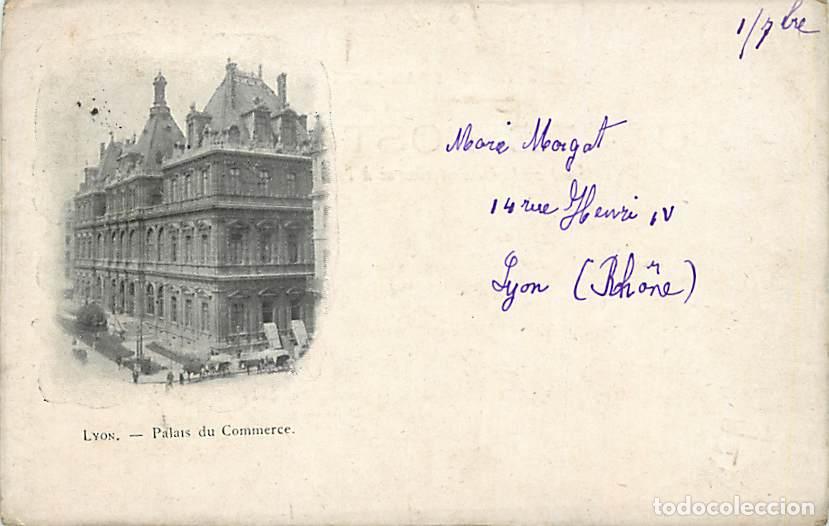 1/7bre
Marie Margat
14 rue Henri IV
Lyon (Rhône)
LYON. — Palais du Commerce.
todocoleccion